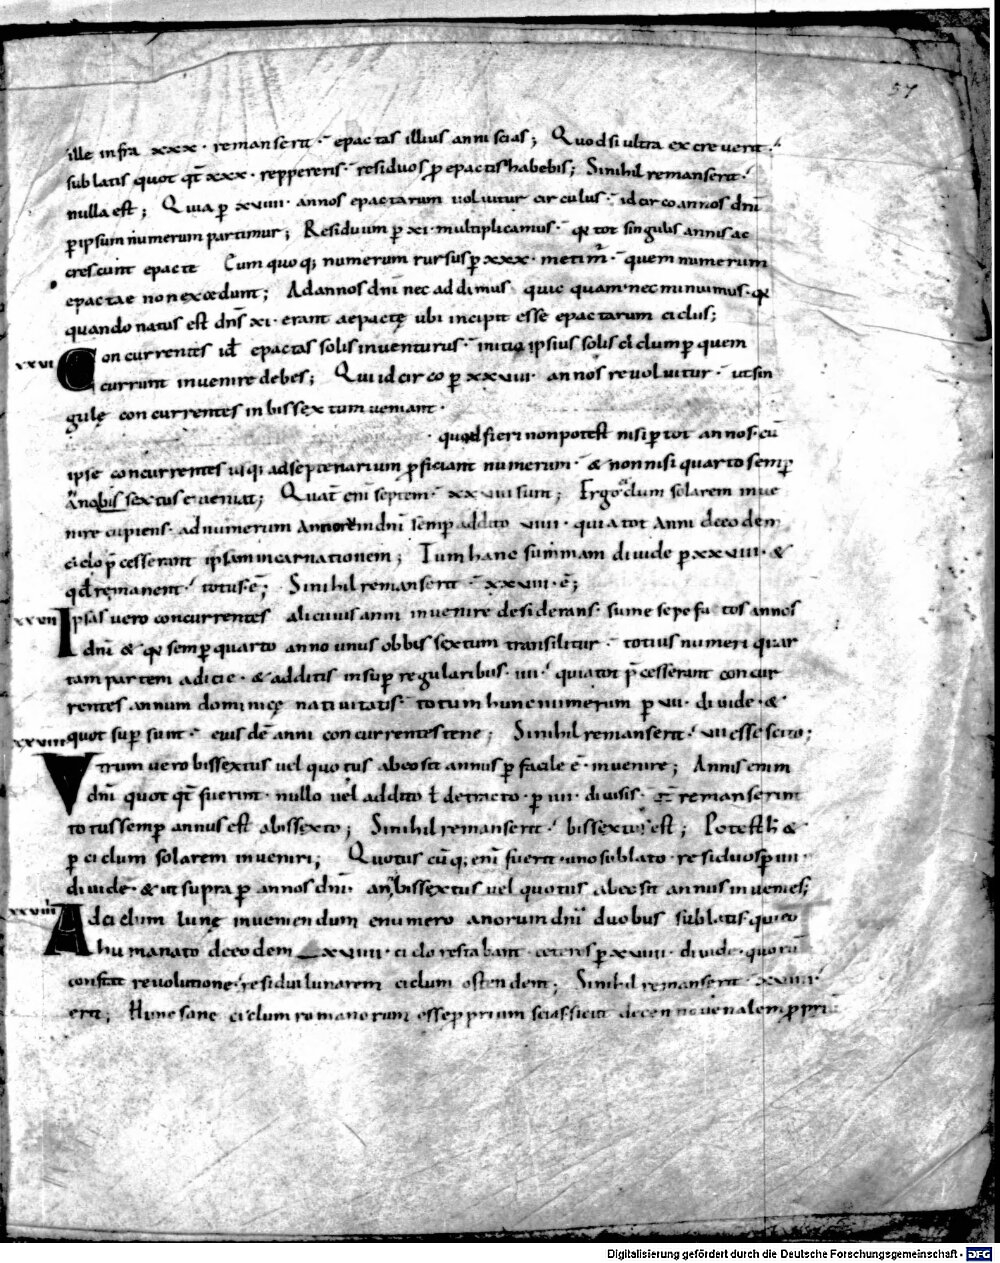 57
ille infra xxx · remanserit · epactas illius anni scias ; Quodsi ultra excreverit ·
sublatis quot qt̄ xxx · reppereris · residuos ꝓ epactis habebis ; Sinihil remanserit ·
nulla est ; Quia ꝑ xviiii · annos epactarum uoluitur circulus · idcirco annos dn̄i
ꝑ ipsum numerum partimur ; Residuum ꝑ xi · multiplicamus · qꝫ tot singulis annis ac
crescunt epacte Cum quoqꝫ numerum rursus ꝑ xxx · metimur · quem numerum
epactae non excedunt ; Ad annos dn̄i nec addimus quic quam · nec minuimus · qꝫ
quando natus est dn̄s xi · erant aepactę ubi incipit esse epactarum ciclus ;
xxvi Concurrentes id̄ epactas solis inuenturus · initiū ipsius solis ciclum ꝑ quem
currunt inuenire debes ; Qui idcirco ꝑ xxviii · annos reuoluitur · ut sin
gulę concurrentes in bissextum ueniant ·
· quod fieri non potest nisi ꝑ tot annos · cū
ipse concurrentes usqꝫ ad septenarium ꝓficiant numerum · & non nisi quarto semꝑ
anno bissextus eueniat ; Quat̄ eni septem · xxviii sunt ; Ergo dum solarem inue
nire cupiens · ad numerum annorum dn̄i semꝑ addito viiii · quia tot anni de eodem
ciclo p̄cesserunt ipsam incarnationem ; Tum hanc summam diuide ꝑ xxviii · &
qd̄ remanent · totus · ē ; Sinihil remanserit · xxviii · ē ;
xxvii Ipsas uero concurrentes alicuius anni inuenire desiderans · sume sepefatos annos
dn̄i & qꝫ semꝑ quarto anno unus ob bissextum transilitur · totius numeri quar
tam partem adicie · & additis insuꝑ regularibus · iiii · quia tot p̄cesserunt concur
rentes annum dominicę natiuitatis · totum hunc numerum ꝑ vii · diuide · &
quot suꝑ sunt · eius dē anni concurrentes tene ; Sinihil remanserit · vii esse scito ;
xxviii Vtrum uero bissextus uel quotus ab eo sit annus ꝑ facile ē · inuenire ; Annis enim
dn̄i quot qt̄ fuerint · nullo uel addito ł detracto · ꝑ iiii · diuisis · remanserint
totus semꝑ annus est a bissexto ; Sinihil remanserit · bissextus est ; Potest h̄ &
ꝑ ciclum solarem inueniri ; Quotus cūqꝫ eni fuerit · uno sublato · residuos ꝑ iiii ·
diuide · & ut supra ꝑ annos dn̄i · an bissextus uel quotus ab eo sit annus inuenies ;
xxviiii Ad ciclum lunę inueniendum e numero anorum dn̄i duobus sublatis · qui eo
humanato de eodem xviiii · ciclo restabant · ceteros ꝑ xviiii · diuide · quorū
constat reuolutione · residui lunarem ciclum ostendent ; Sinihil remanserit · xviiii ·
erit ; Hunc sane ciclum romanorum esse ꝓprium scias · sicut decennouenalem ꝓpri
Digitalisierung gefördert durch die Deutsche Forschungsgemeinschaft - DFG